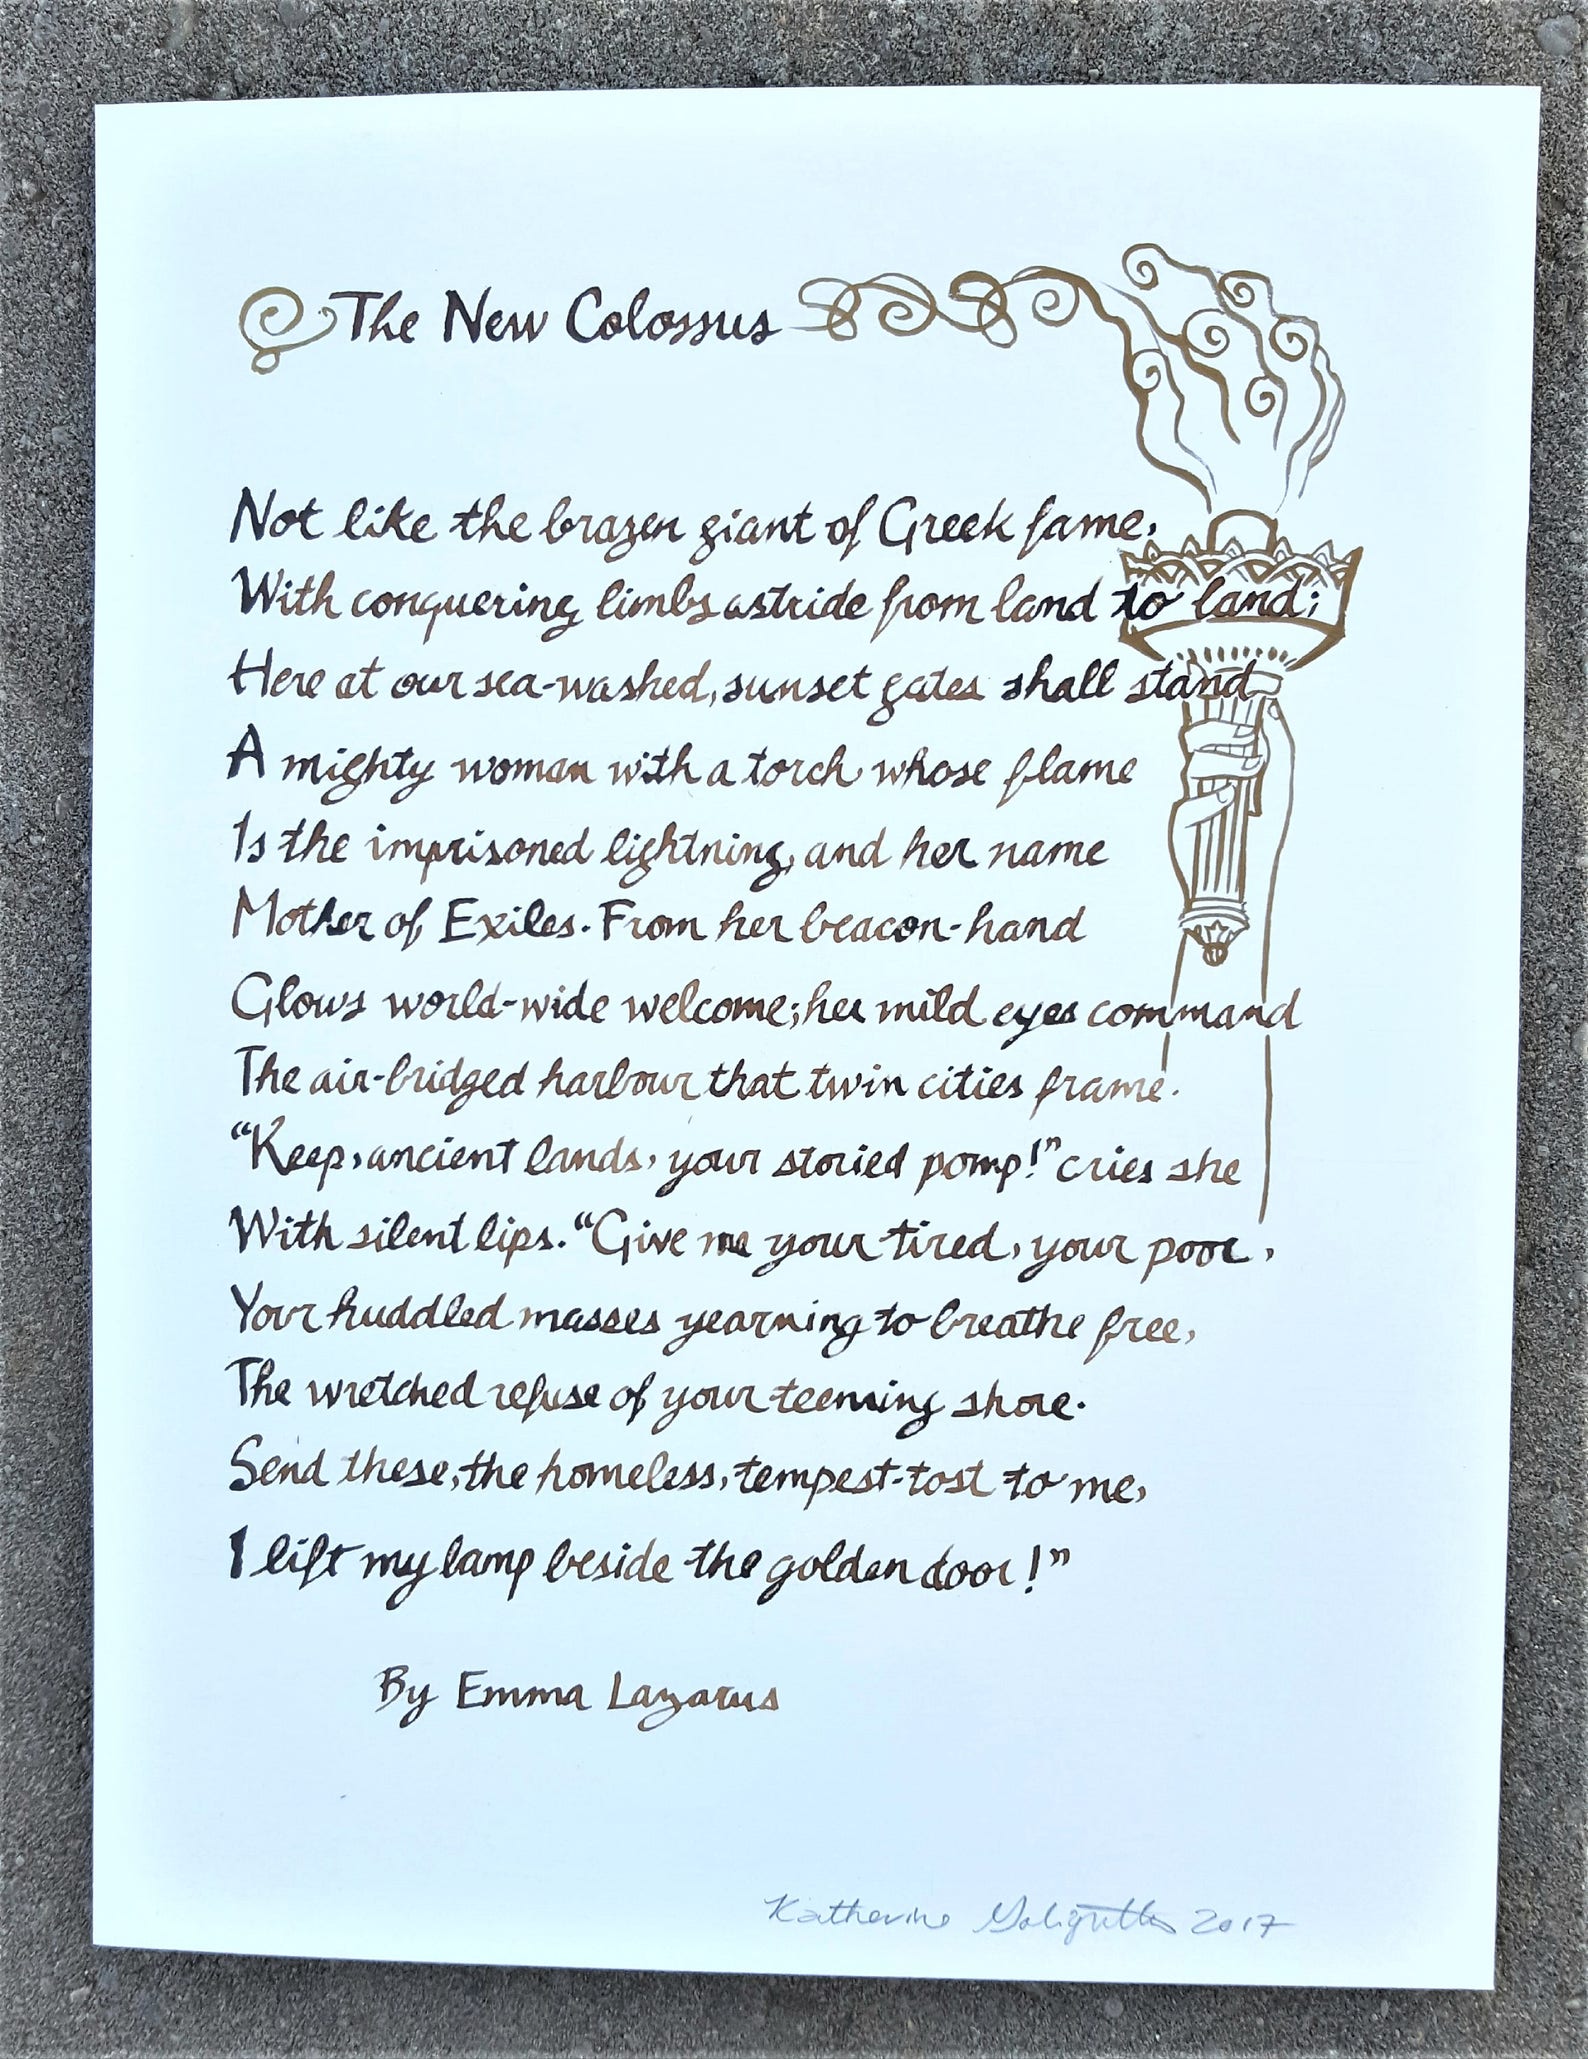 The New Colossus
Not like the brazen giant of Greek fame,
With conquering limbs astride from land to land;
Here at our sea-washed, sunset gates shall stand
A mighty woman with a torch whose flame
Is the imprisoned lightning, and her name
Mother of Exiles. From her beacon-hand
Glows world-wide welcome; her mild eyes command
The air-bridged harbour that twin cities frame.
“Keep, ancient lands, your storied pomp!” cries she
With silent lips. “Give me your tired, your poor,
Your huddled masses yearning to breathe free,
The wretched refuse of your teeming shore.
Send these, the homeless, tempest-tost to me,
I lift my lamp beside the golden door!”
By Emma Lazarus
Katherine 2017